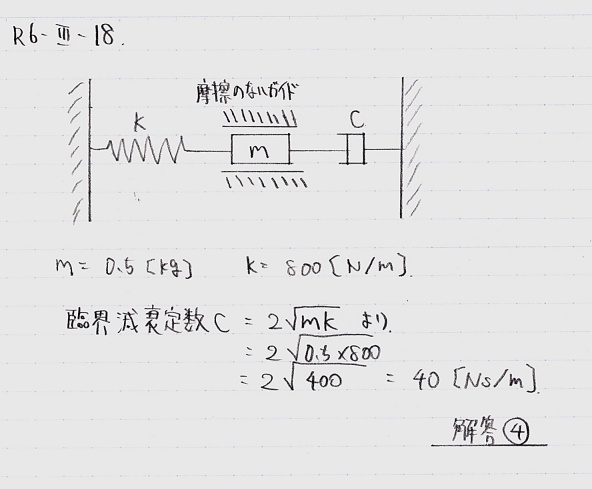 R6-Ⅲ-18.
摩擦のないガイド
k
C
m
m = 0.5 [kg] k = 800 [N/m].
臨界減衰定数 C = 2√mk より.
= 2√0.5×800
= 2√400 = 40 [Ns/m].
解答④